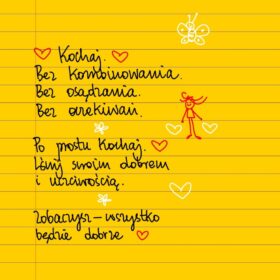 Kochaj.
Bez kombinowania.
Bez osądzania.
Bez oczekiwań.
Po prostu kochaj.
Lśnij swoim dobrem
i uczciwością.
Zobaczysz – wszystko
będzie dobrze